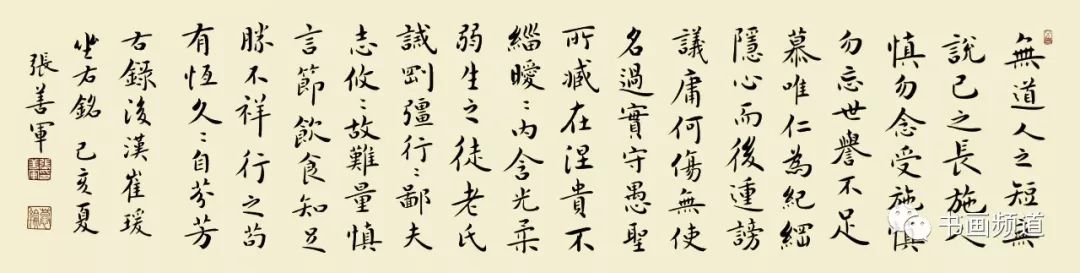 無道人之短無
說己之長施人
慎勿念受施慎
勿忘世譽不足
慕唯仁為紀綱
隱心而後動謗
議庸何傷無使
名過實守愚聖
所臧在涅貴不
緇曖〻內含光柔
弱生之徒老氏
誡剛彊行〻鄙夫
志攸〻故難量慎
言節飲食知足
勝不祥行之苟
有恆久〻自芬芳
右錄後漢崔瑗
坐右銘 己亥夏
張善軍
书画频道